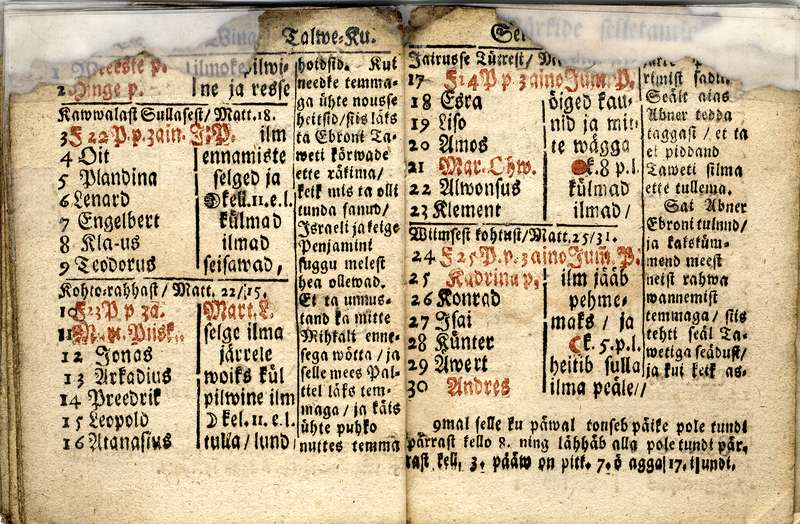 Talwe-Ku.
2 Hinge p.
ne ja resse
Kawwalast Sullasest/ Matt. 18.
3 F 22 P. p. 3ain. J. P. ilm
4 Oit ennamiste
5 Plandina selged ja
6 Lenard kell. 11. e. l.
7 Engelbert külmad
8 Kla-us ilmad
9 Teodorus seisawad,
Kohto-rahhast/ Matt. 22/15.
10 F 23 P. p. 3a. Mart. L.
11 Mart. Piisk. selge ilma
12 Jonas järrele
13 Arkadius woiks kül
14 Preedrik pilwine ilm
15 Leopold kel. 11. e. l.
16 Atanasius tulla/ lund/
hoidsid. Kui
needke temma-
ga ühte nousse
heitsid/ siis läks
ta Ebroni Ta-
weti körwade
ette räkima/
keik mis ta olli
tunda sanud/
Israeli ja keige
Penjamini
suggu melest
hea ollewad.
Et ta unnus-
tand ka mitte
Mihkali enne-
sega wötta/ ja
selle mees Pal-
tiel läks tem-
maga/ ja käis
ühte puhko
nuttes temma
Jairusse Tüttrest/
17 F 24 P. p. 3ainoJum. P.
18 Esra öiged kau-
19 Liso nid ja mit-
20 Amos te wägga
21 Mar. Ohw. k. 8 p. l.
22 Alwonsus külmad
23 Klement ilmad/
Wiimsest kohtust/ Matt. 25/31.
24 F 25 P. p. 3ainoJum. P.
25 Kadrina p. ilm jääb
26 Konrad pehme-
27 Isai maks/ ja
28 Künter k. 5. p. l.
29 Awert heitib sulla
30 Andres ilma peäle//
rimist sadit.
Seält aias
Abner tedda
taggasi/ et ta
ei piddand
Taweti silma
ette tullema.
Sai Abner
Ebroni tulnud/
ja kakstüm-
mend meest
neist rahwa
wannemist
temmaga/ siis
tehti seäl Ta-
wetiga seädust/
ja kui keik as-
9mal selle ku päwal touseb päike pole tundi
pärrast kello 8. ning lähhäb alla pole tundi pär-
rast kell. 3. pääw on pitk. 7. ö agga 17. tundi.